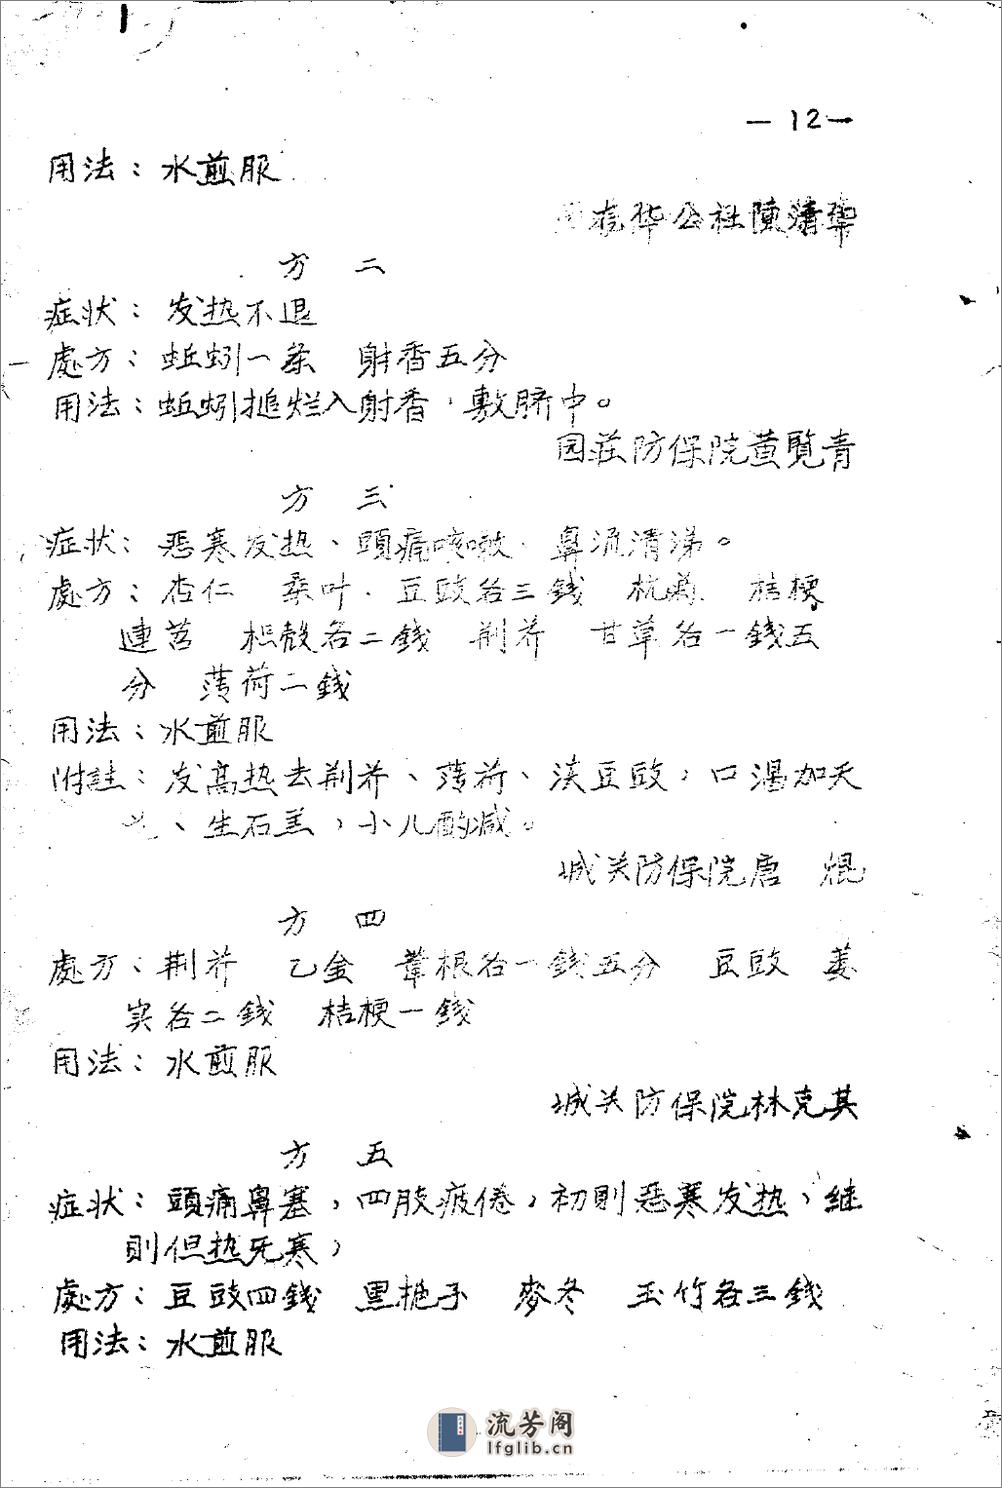 — 12 —
用法：水煎服
花华公社陳清华
方 二
症状：发热不退
處方：蚯蚓一条 射香五分
用法：蚯蚓搥烂入射香，敷脐中。
园莊防保院黄覽青
方 三
症状：恶寒发热、頭痛咳嗽、鼻流清涕。
處方：杏仁 桑叶、豆豉各三錢 杭菊 桔梗
連苕 枳殼各二錢 荆芥 甘草各一錢五
分 薄荷二錢
用法：水煎服
附註：发高热去荆芥、薄荷、淡豆豉，口渴加天
、生石羔，小儿酌减。
城关防保院唐 焜
方 四
處方：荆芥 乙金 葦根各一錢五分 豆豉 蒌
实各二錢 桔梗一錢
用法：水煎服
城关防保院林克其
方 五
症状：頭痛鼻塞，四肢疲倦，初則恶寒发热，继
則但热旡寒，
處方：豆豉四錢 黑栀子 麥冬 玉竹各三錢
用法：水煎服
流芳阁
lfglib.cn